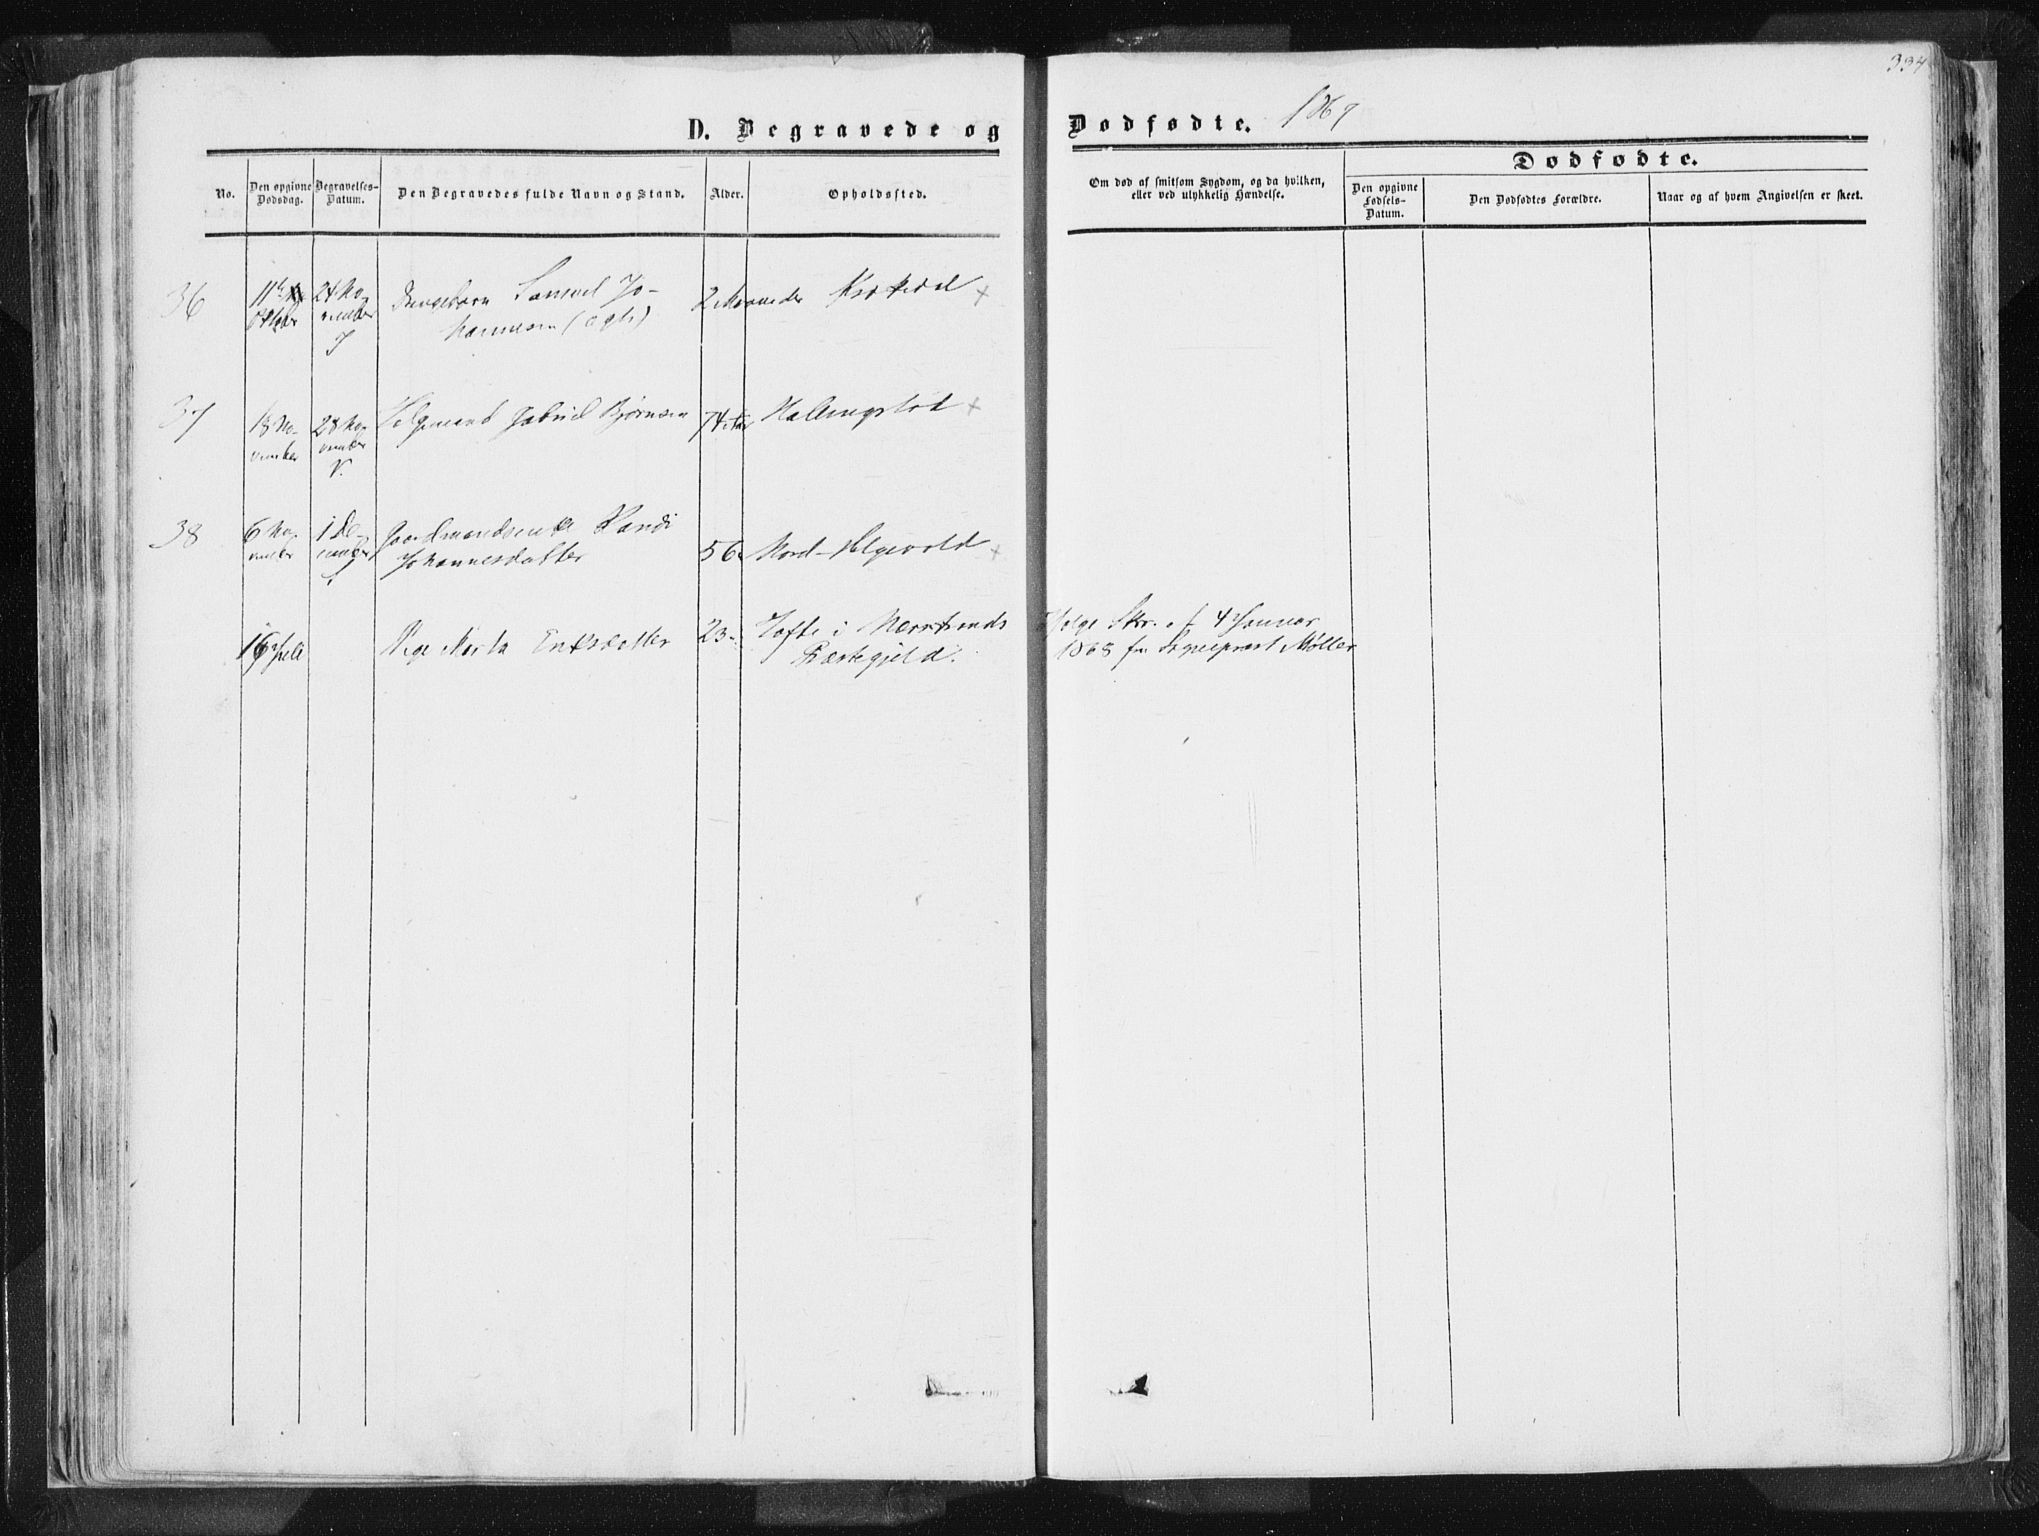 334
D. Begravede og Dødfødte. 1867
Dødfødte.
No.
Den opgivne Dødsdag.
Begravelses-Datum.
Den Begravedes fulde Navn og Stand.
Alder.
Opholdssted.
Om død af smitsom Sygdom, og da hvilken, eller ved ulykkelig Hændelse.
Den opgivne Fødsels-Datum.
Den Dødfødtes Forældre.
Naar og af hvem Angivelsen er skeet.
36
11te Oktober
24 November
Drengebarn Samuel Johannesen (ægte)
2 Maaneder
37
18 November
28 November
V.
Gabriel Bjørnsen
74 Aar
38
6 November
1 December
Gaardmandsenke Randi Johannesdatter
56
Nord-Helgevold
16 Juli
Pige Marta Eriksdatter
23
Tofte i Nærstrands Præstegjeld.
ifølge Skr. af 4 Januar
1868 fra Sognepræst Møller